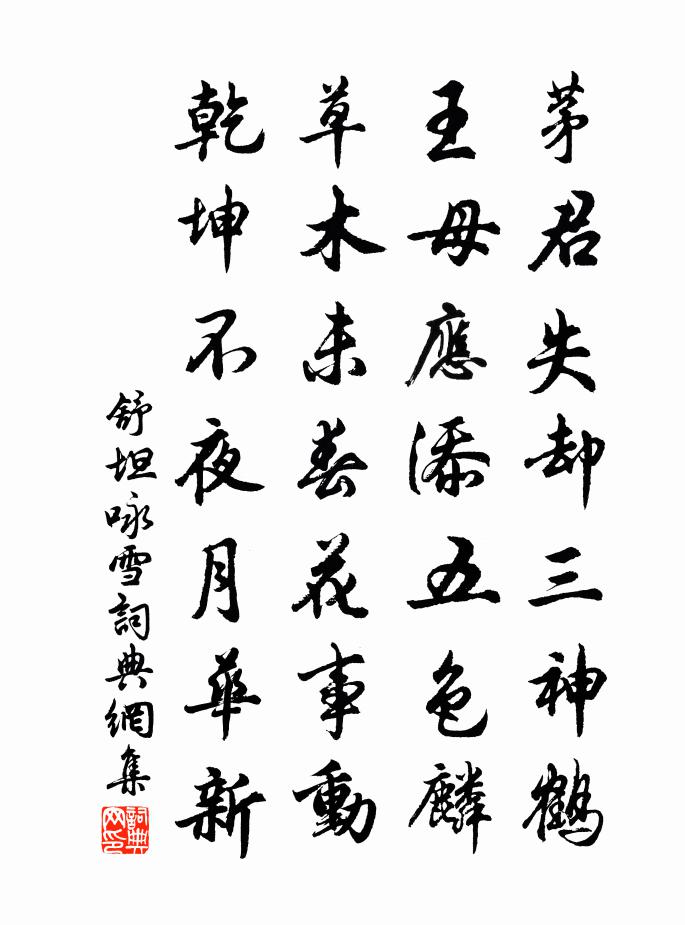 茅君失却三神鶴
王母應添五色麟
草木未春花事動
乾坤不夜月華新
舒坦咏雪詞典網集
詞典网印